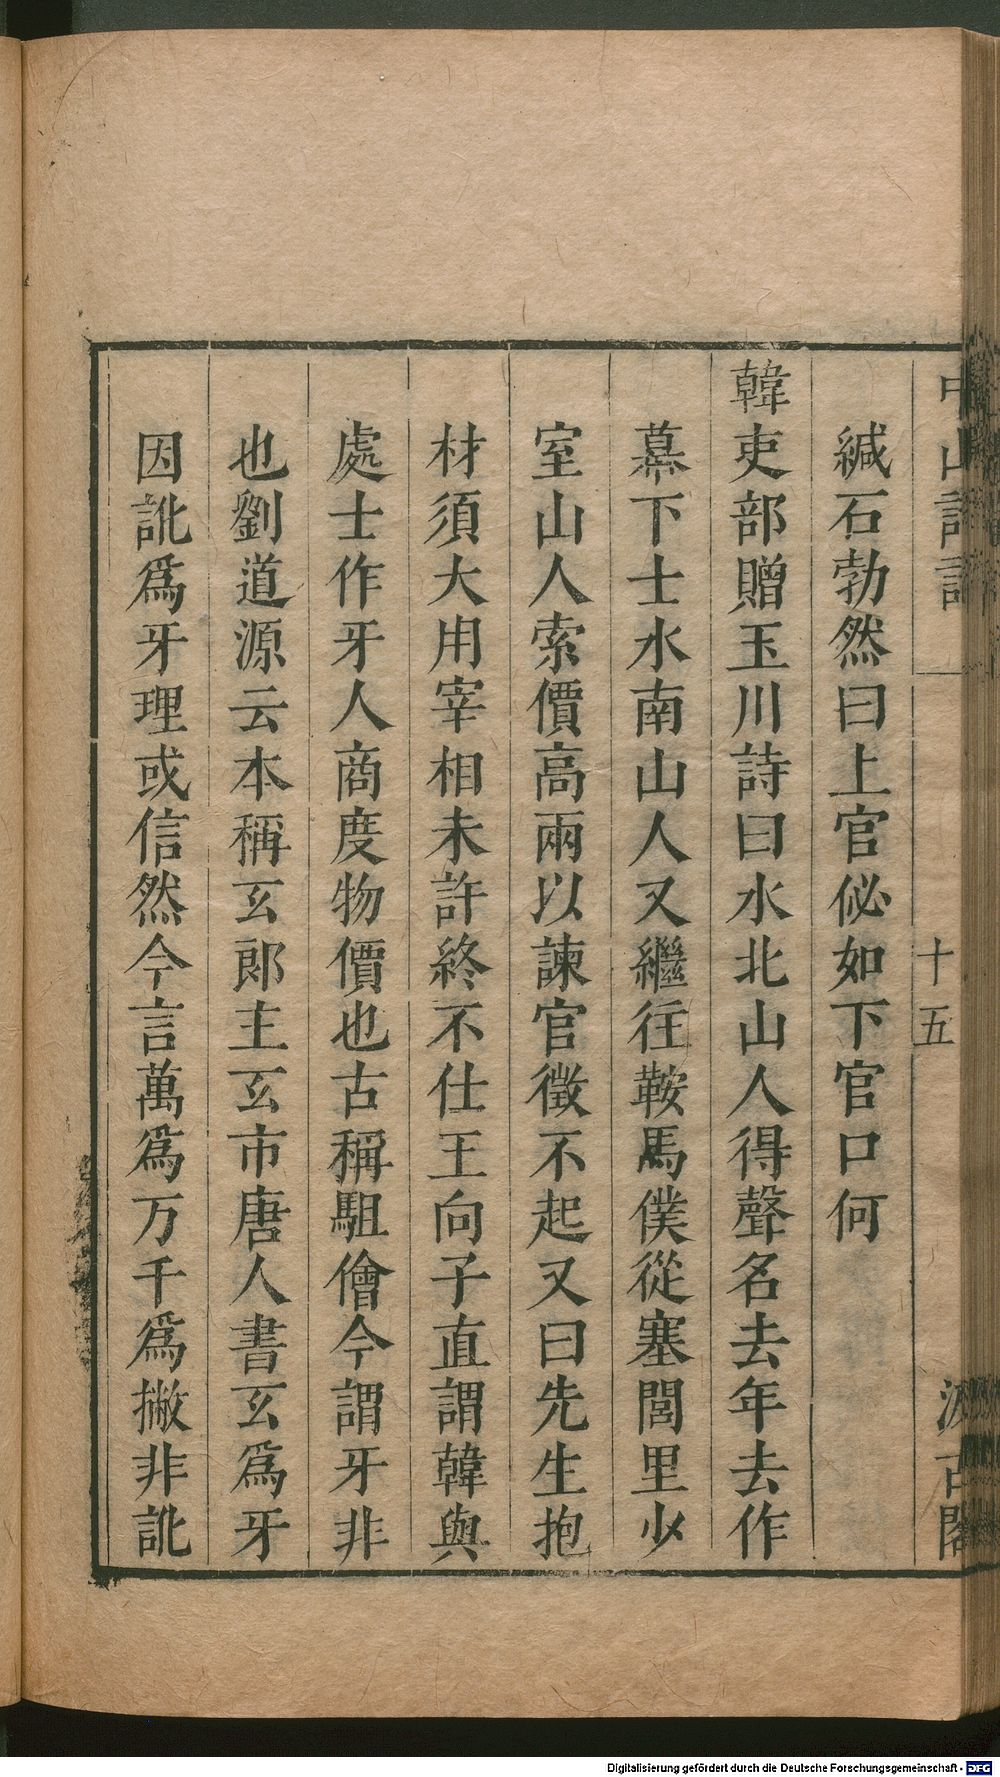 中山詩話
十五
汲古閣
緘石勃然曰上官佖如下官口何
韓吏部贈玉川詩曰水北山人得聲名去年去作
幕下士水南山人又繼徃鞍馬僕從塞閭里少
室山人索價高兩以諫官徵不起又曰先生抱
材須大用宰相未許終不仕王向子直謂韓與
處士作牙人商度物價也古稱駔儈今謂牙非
也劉道源云本稱玄郎主玄市唐人書玄爲牙
因訛爲牙理或信然今言萬爲万千爲撇非訛
Digitalisierung gefördert durch die Deutsche Forschungsgemeinschaft - DFG